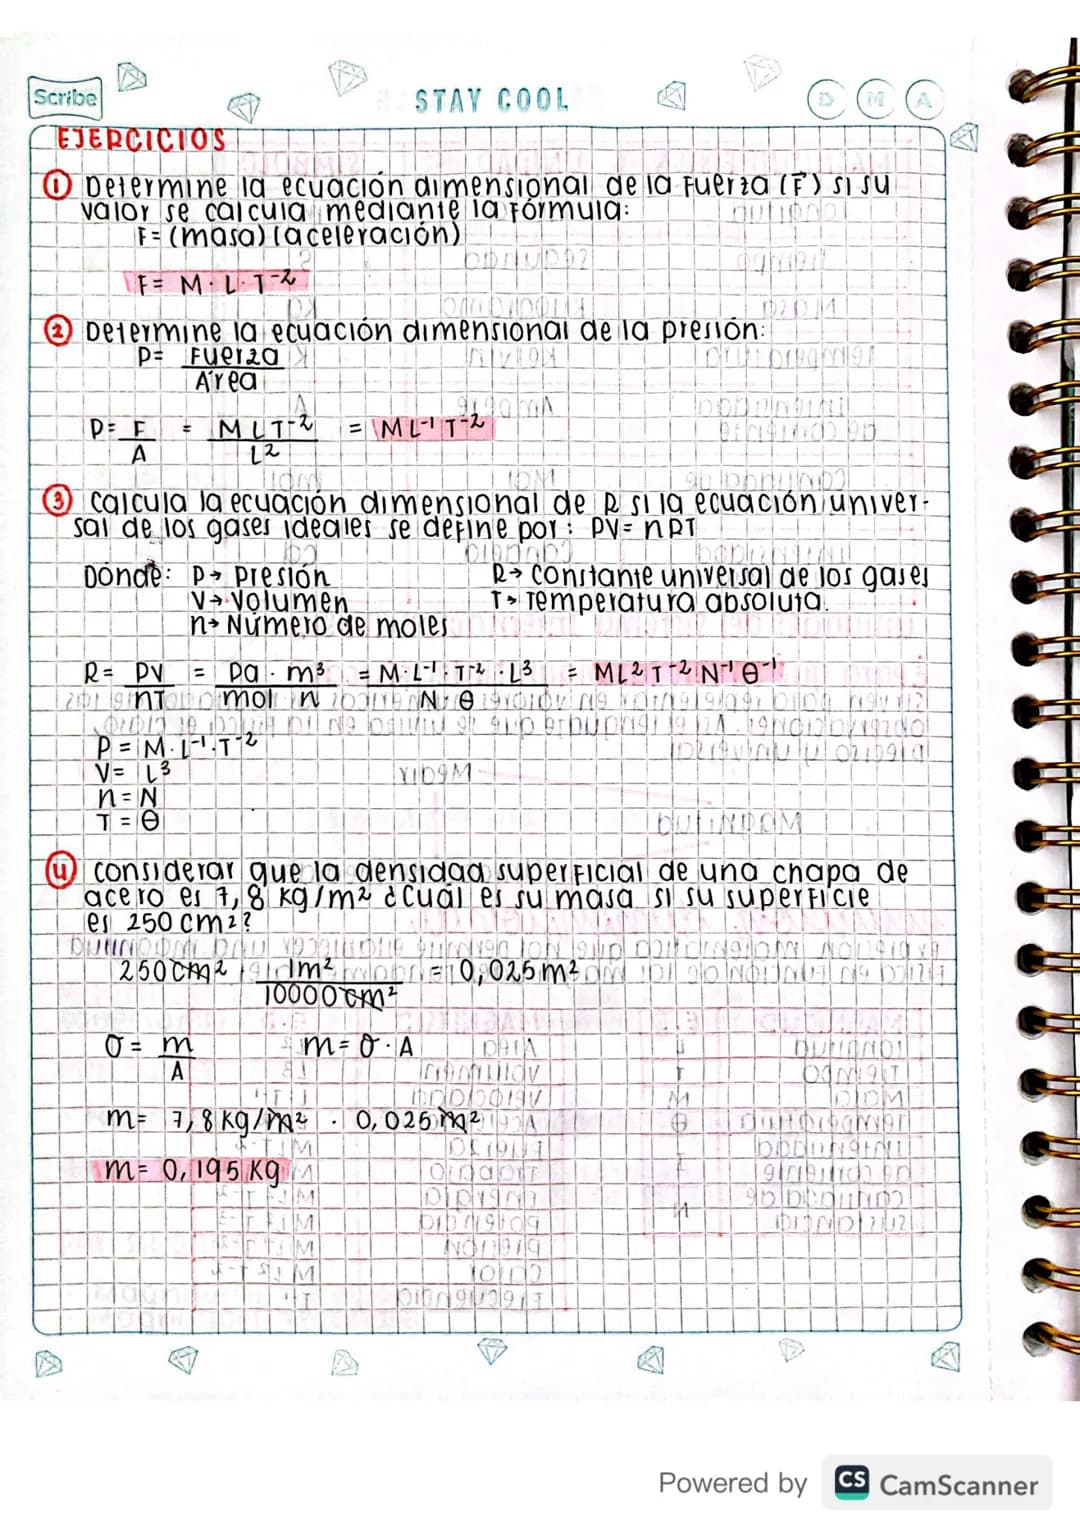 Scribe
STAY COOL
D M A
EJERCICIOS
① Determine la ecuación dimensional de la Fuerza (F) si su
valor se calcula mediante la Fórmula:
F= (masa) (aceleración)
F= M · L · T⁻²
② Determine la ecuación dimensional de la presión:
P= Fuerza
Área
P= F = MLT⁻² = ML⁻¹T⁻²
A L²
③ Calcula la ecuación dimensional de R si la ecuación univer-
sal de los gases ideales se define por: PV= nRT
Dónde: P→ Presión R→ Constante universal de los gases
V→ Volumen T→ Temperatura absoluta.
n→ Número de moles
R= PV = Pa · m³ = M·L⁻¹·T⁻² · L³ = ML²T⁻²N⁻¹θ⁻¹
nT mol n N·θ
P = M·L⁻¹·T⁻²
V= L³
n = N
T = θ
④ Considerar que la densidad superficial de una chapa de
acero es 7,8 kg/m² ¿Cuál es su masa si su superficie
es 250 cm²?
250 cm² 1m² = 0,025 m²
10000 cm²
σ = m m= σ · A
A
m= 7,8 kg/m² · 0,025 m²
m= 0,195 kg
Powered by CS CamScanner